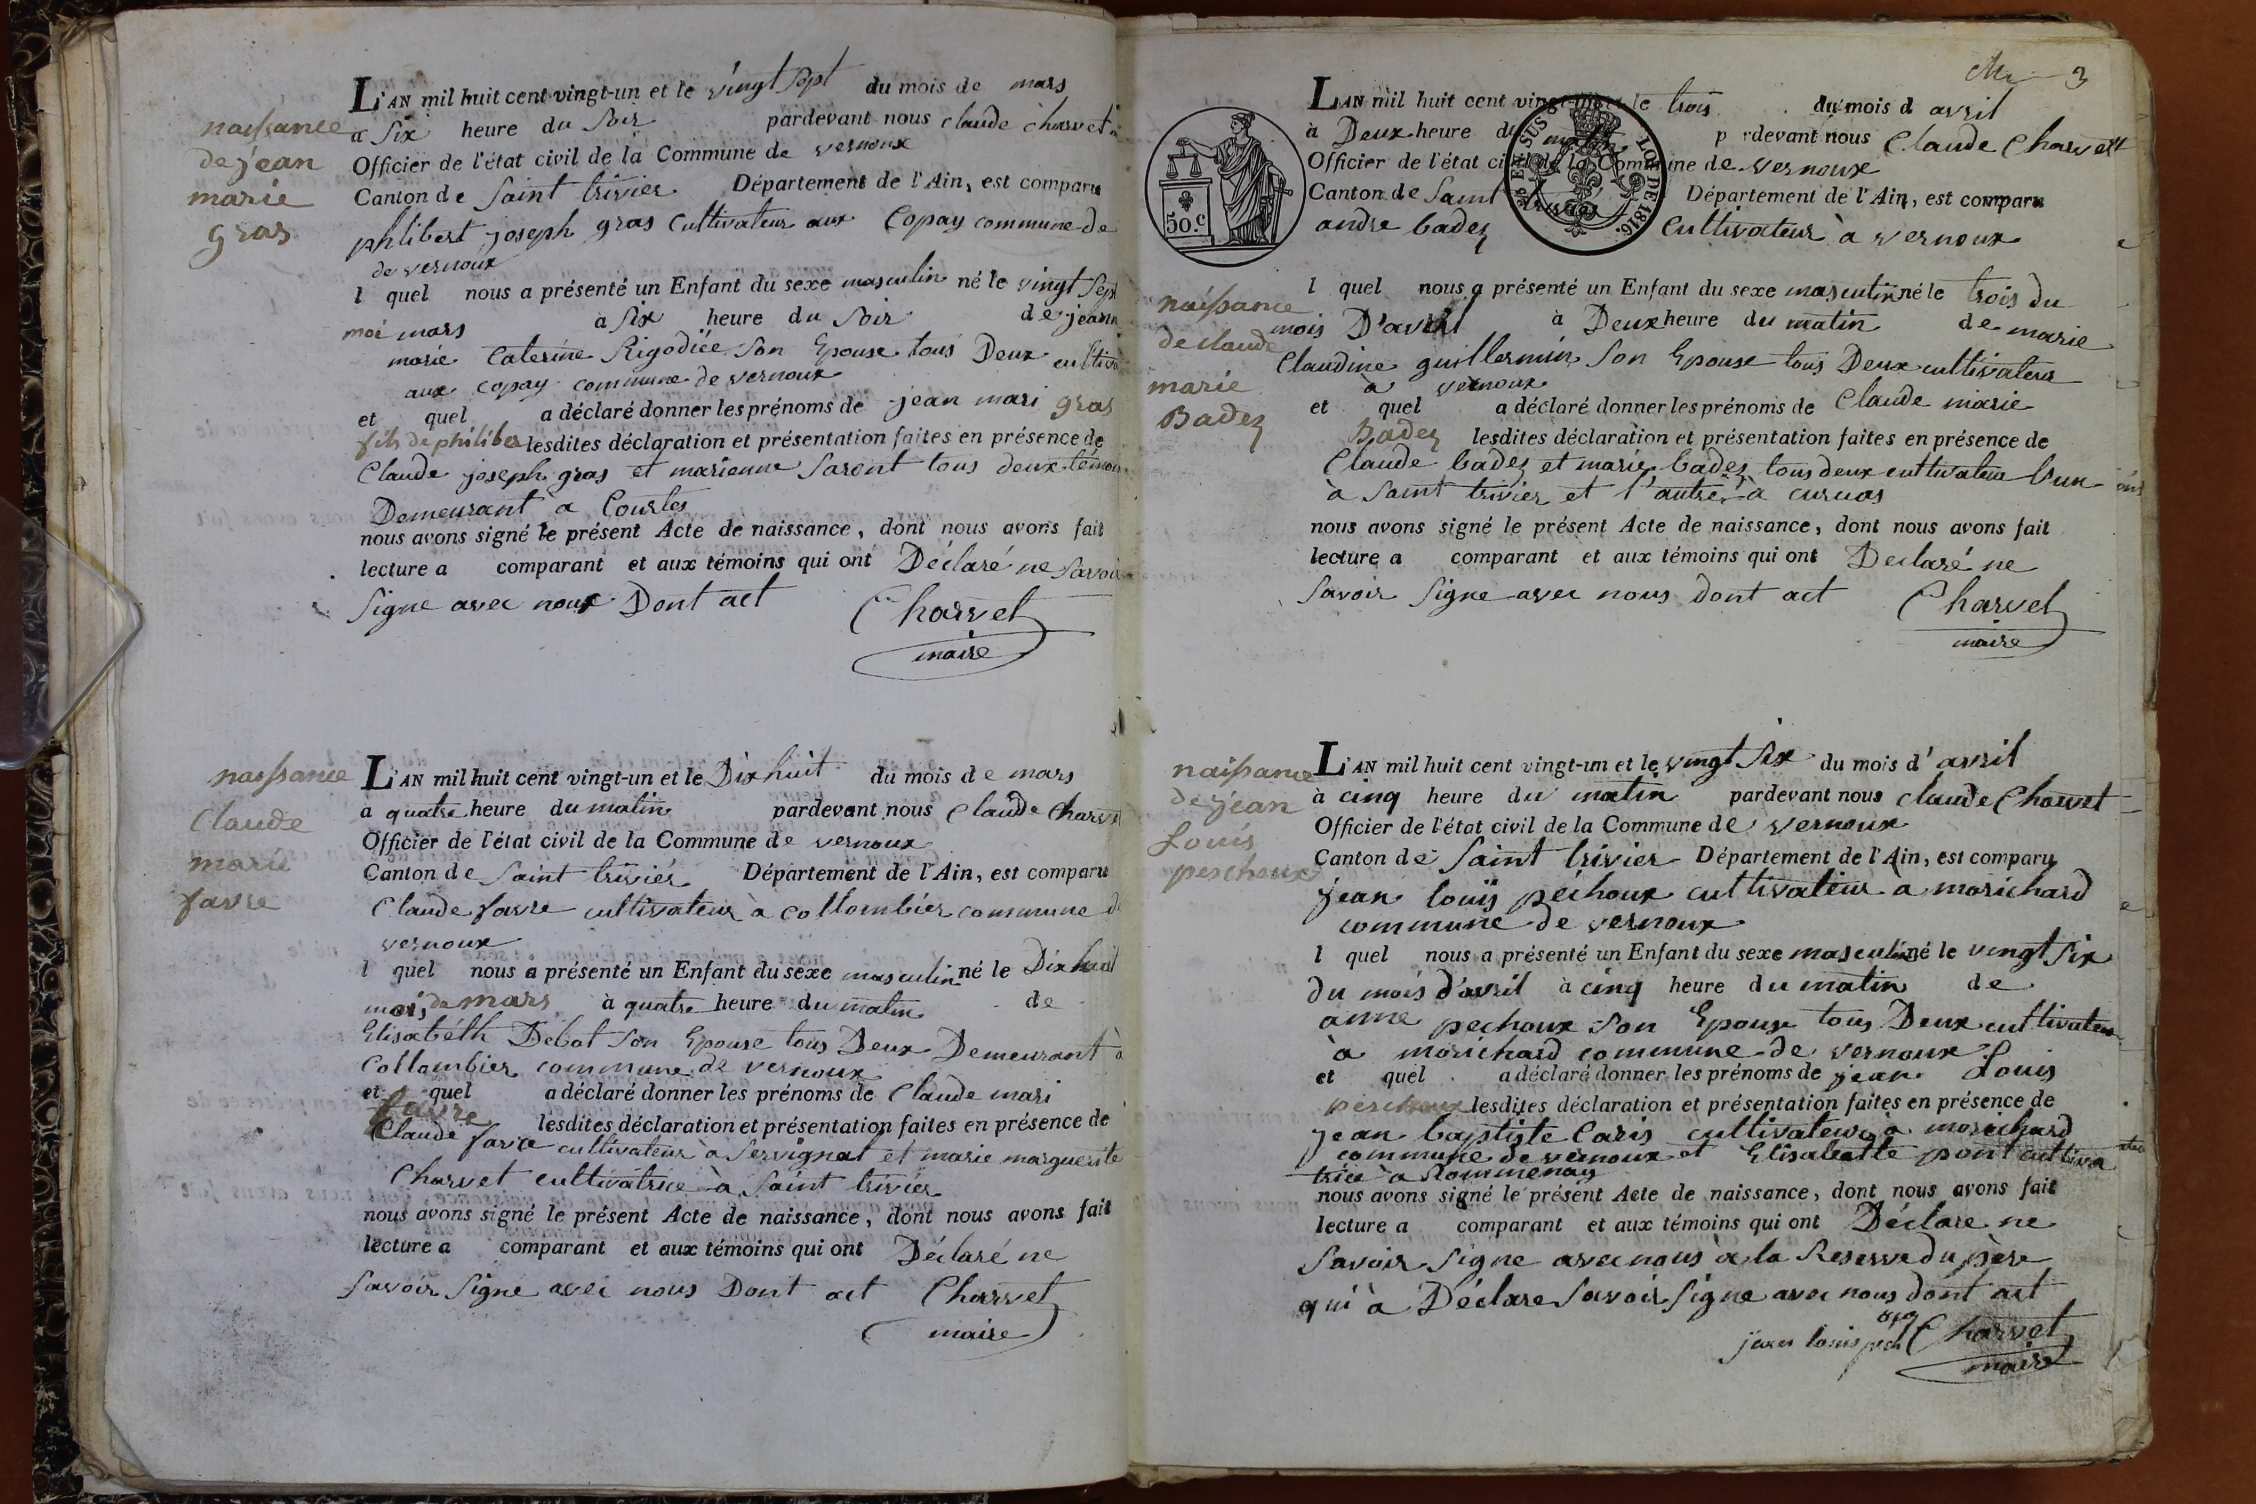 naissance
de jean
marie
gras
L'AN mil huit cent vingt-un et le vingt sept du mois de mars
a six heure du soir pardevant nous claude charvet
Officier de l'état civil de la Commune de vernoux
Canton de saint trivier Département de l'Ain, est comparu
philibert joseph gras cultivateur aux Copay commune de
de vernoux
l quel nous a présenté un Enfant du sexe masculin né le vingt sept
moi mars a six heure du soir de jeann
marie caterine Rigodiée son Epouse tous Deux cultiva
aux copay commune de vernoux
et quel a déclaré donner les prénoms de jean mari gras
fils de philiber lesdites déclaration et présentation faites en présence de
Claude joseph gras et marienne sarent tous deux témoin
Demeurant à Courtes
nous avons signé le présent Acte de naissance, dont nous avons fait
lecture a comparant et aux témoins qui ont Déclaré ne savoir
signe avec nous Dont act Charvet
maire
naissance
Claude
marie
favre
L'AN mil huit cent vingt-un et le Dix huit du mois de mars
a quatre heure du matin pardevant nous Claude Charvet
Officier de l'état civil de la Commune de vernoux
Canton de saint trivier Département de l'Ain, est comparu
Claude favre cultivateur à collombier commune de
vernoux
l quel nous a présenté un Enfant du sexe masculin né le Dix huit
moi, de mars à quatre heure du matin de
Elisabeth Debat son Epouse tous Deux Demeurant à
Collambier commune de vernoux
et quel a déclaré donner les prénoms de Claude mari
favre lesdites déclaration et présentation faites en présence de
Claude favre cultivateur à servignat et marie marguerite
Charvet cultivatrice à saint trivier
nous avons signé le présent Acte de naissance, dont nous avons fait
lecture a comparant et aux témoins qui ont Déclaré ne
savoir signe avec nous Dont act Charvet
maire
3
50.c
LOI DE 1816.
naissance
de claude
marie
Badez
L'AN mil huit cent vingt-un et le trois du mois d avril
à Deux heure du matin p rdevant nous Claude Charvet
Officier de l'état civil de la Commune de vernoux
Canton de saint trivier Département de l'Ain, est comparu
andre badez cultivateur à vernoux
l quel nous a présenté un Enfant du sexe masculin né le trois du
mois D'avril à Deux heure du matin de marie
Claudine guillermin son Epouse tous Deux cultivateur
à vernoux
et quel a déclaré donner les prénoms de Claude marie
Badez lesdites déclaration et présentation faites en présence de
Claude badez et marie badez tous deux cultivateur l'un
à saint trivier et l'autre à curuas
nous avons signé le présent Acte de naissance, dont nous avons fait
lecture a comparant et aux témoins qui ont Declaré ne
savoir signe avec nous dont act Charvet
maire
naissance
de jean
Louis
pescheux
L'AN mil huit cent vingt-un et le vingt six du mois d'avril
à cinq heure du matin pardevant nous claude Charvet
Officier de l'état civil de la Commune de vernoux
Canton de saint trivier Département de l'Ain, est comparu
jean louis péchoux cultivateur a morichard
commune de vernoux
l quel nous a présenté un Enfant du sexe masculin né le vingt six
du mois d'avril à cinq heure du matin de
anne pechoux son Epouse tous Deux cultivateur
à morichard commune de vernoux
et quel a déclaré donner les prénoms de jean Louis
pescheux lesdites déclaration et présentation faites en présence de
jean baptiste Caris cultivateur à morichard
commune de vernoux et Elisabette pont cultiva
trice à Rommenay
nous avons signé le présent Acte de naissance, dont nous avons fait
lecture a comparant et aux témoins qui ont Déclare ne
savoir signe avec nous à la Reserve du père
qui à Déclare savoir signe avec nous dont act
jean louis pech Charvet
maire